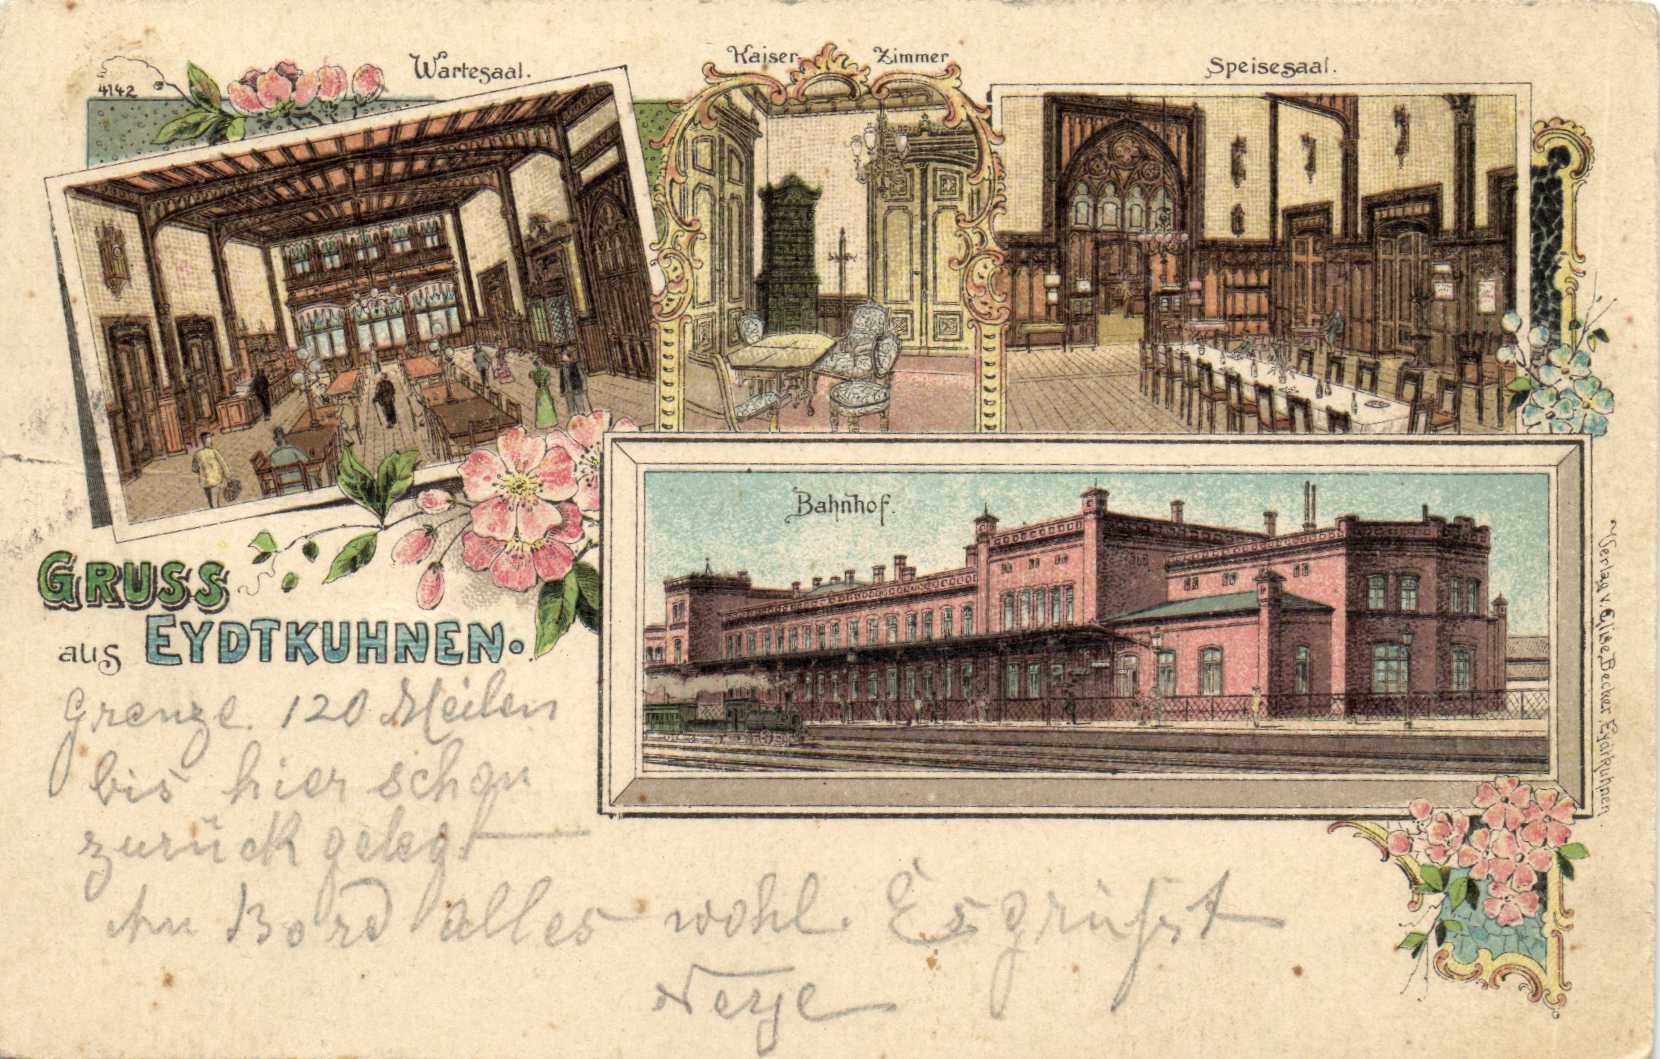 4142
Wartesaal.
Kaiser Zimmer
Speisesaal.
Bahnhof.
GRUSS
aus EYDTKUHNEN.
Verlag v. Elise Becker, Eydtkuhnen.
Grenze. 120 Meilen
bis hier schon
zurück gelegt
An Bord alles wohl. Es grüßt